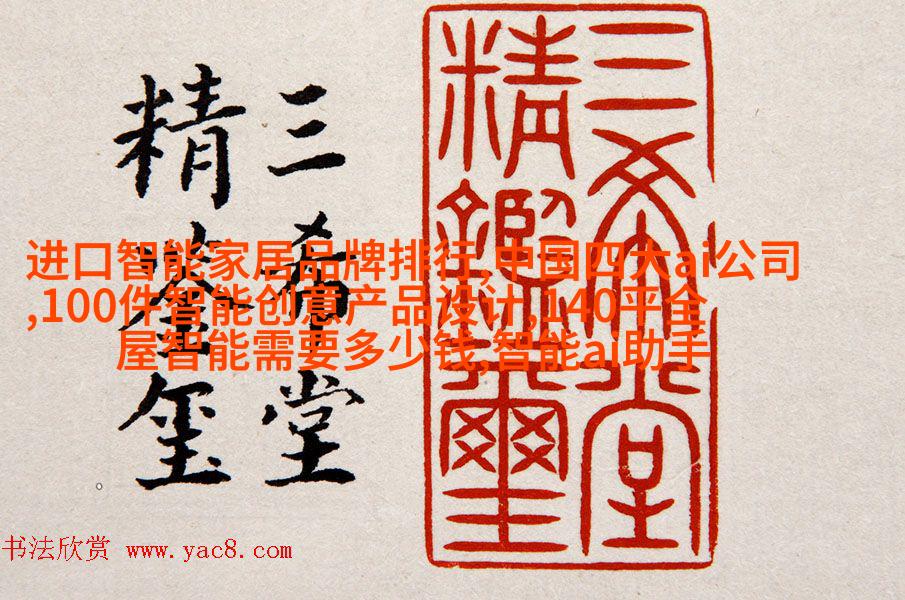 三希堂
精鉴玺
三希堂
精鑑璽
进口智能家居品牌排行,中国四大ai公司
,100件智能创意产品设计,140平全
屋智能需要多少钱,智能ai助手
书法欣赏 www.yac8.com